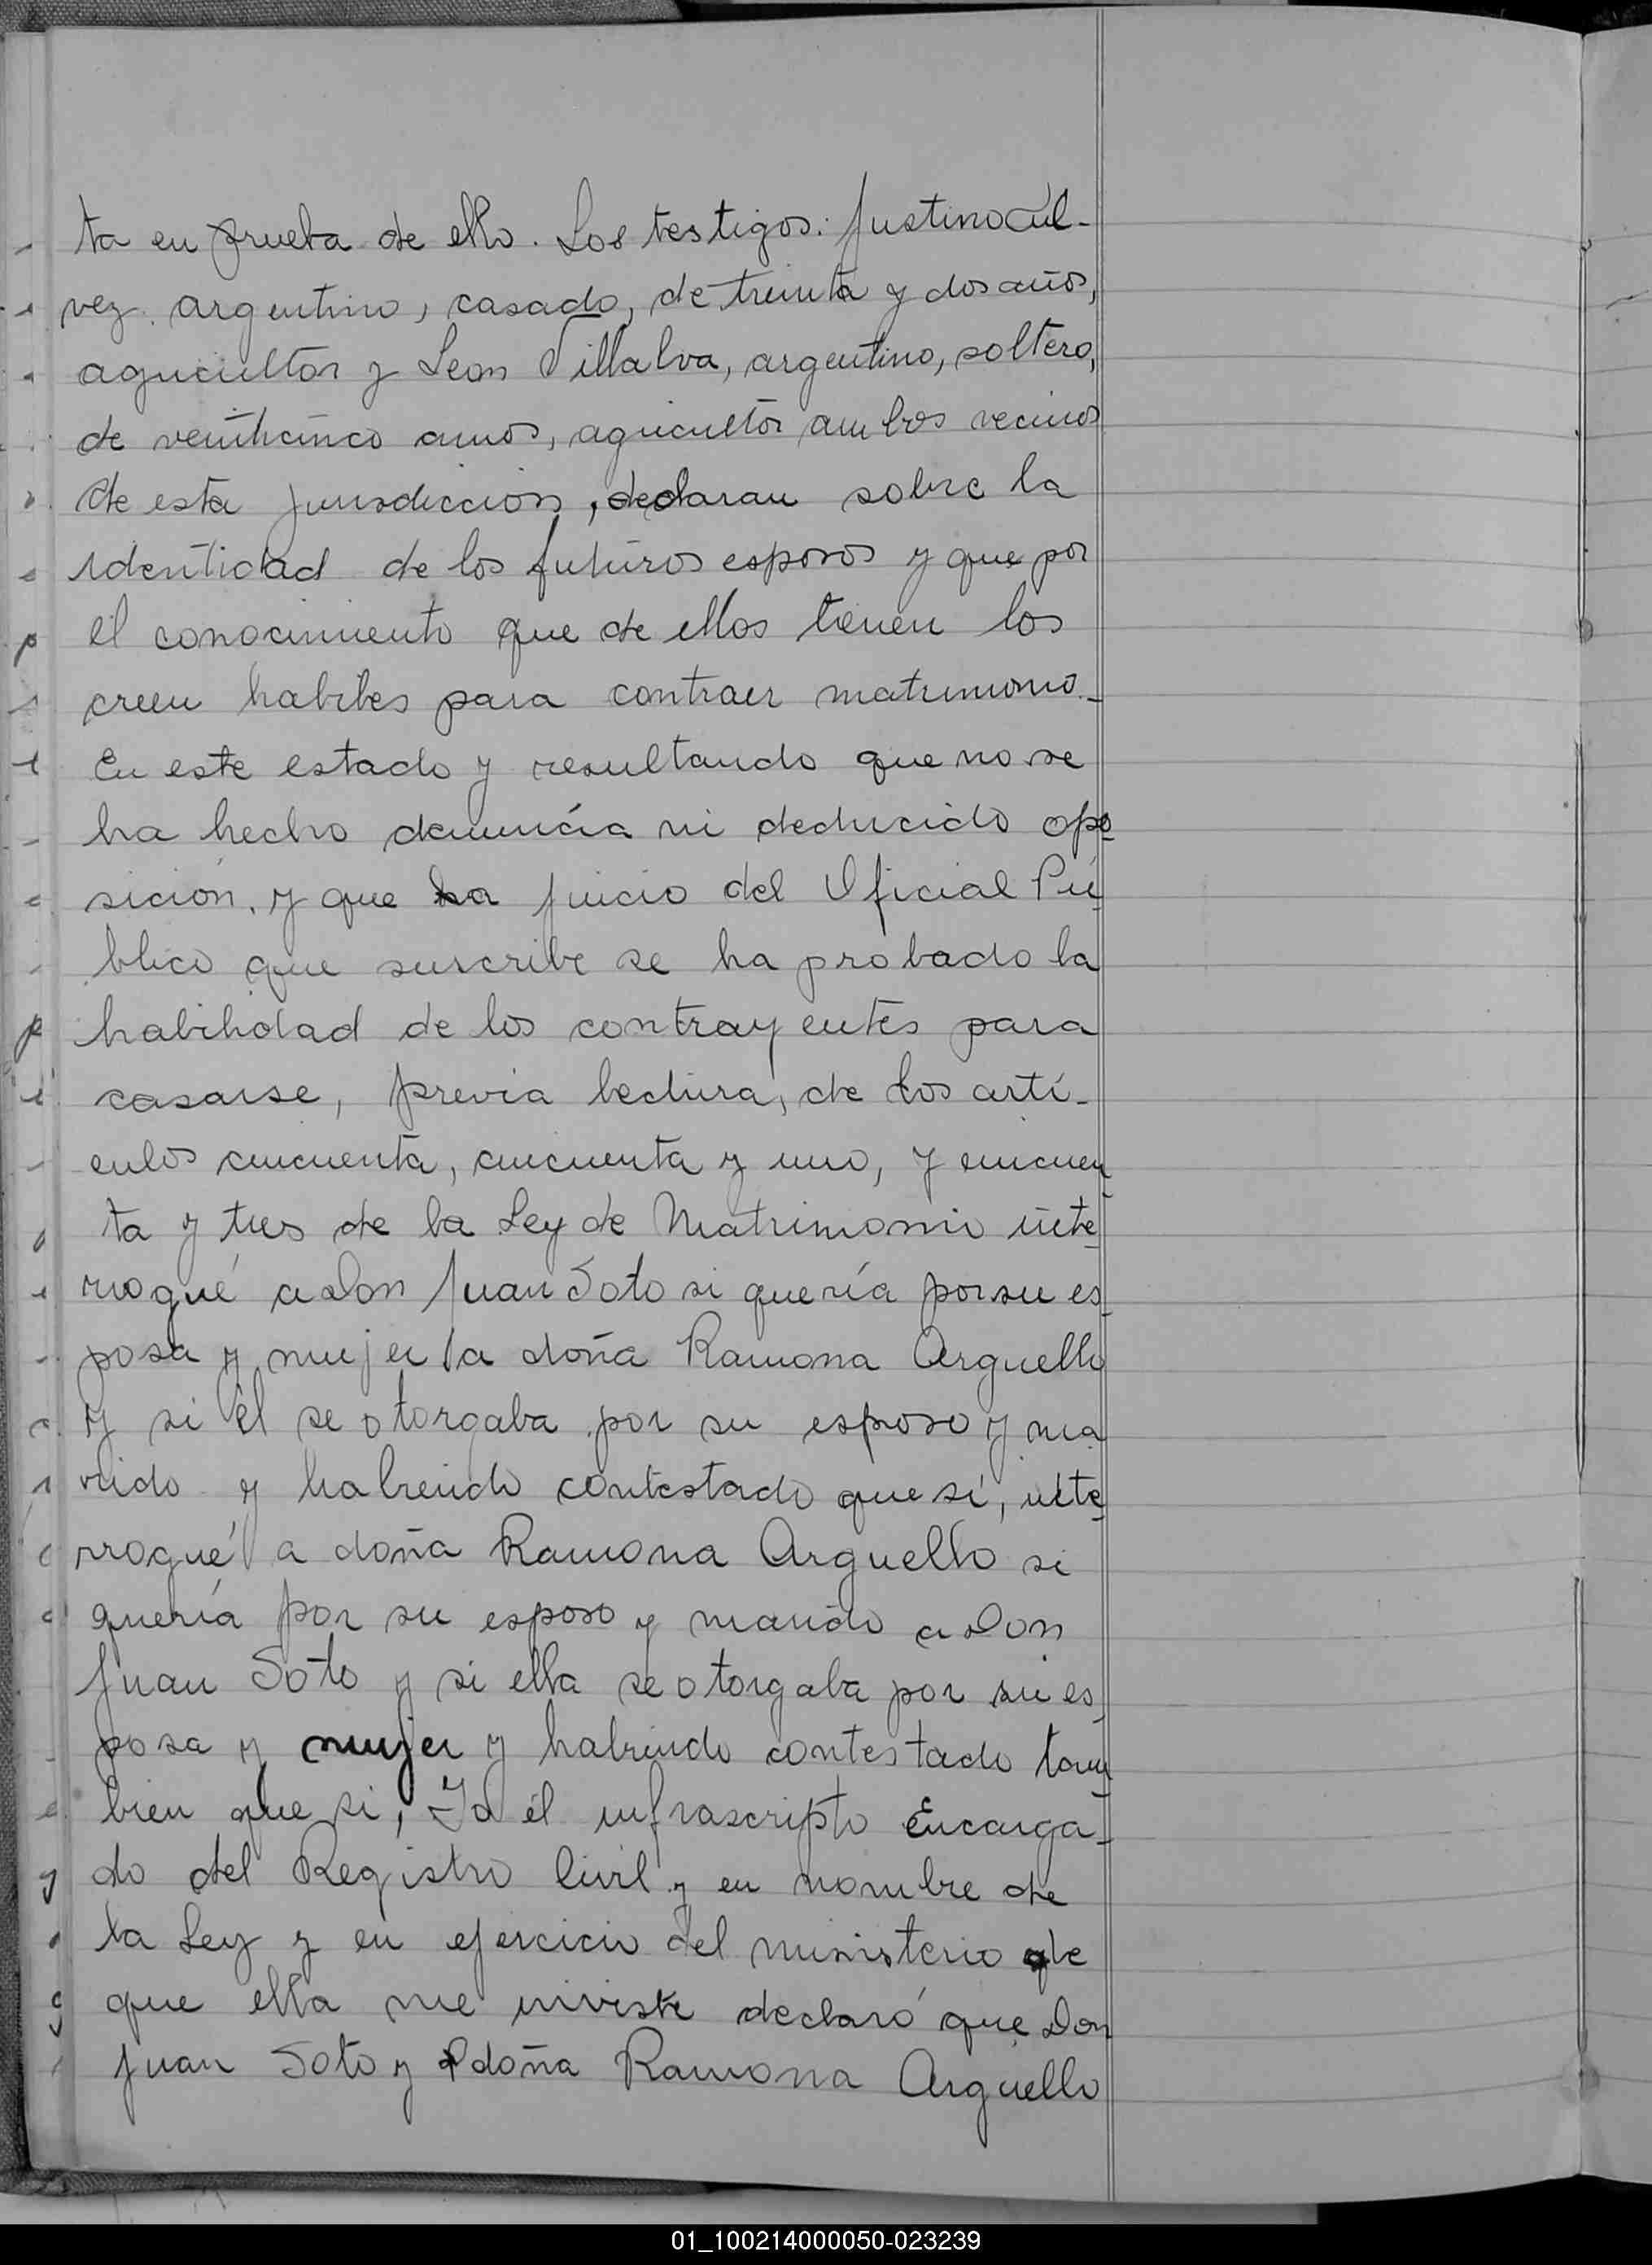 ta en prueba de ello. Los testigos: Justino Cul-
vez. argentino, casado, de treinta y dos años,
agricultor y Leon Villalva, argentino, soltero,
de veinticinco años, agricultor ambos vecinos
de esta jurisdiccion, declaran sobre la
identidad de los futuros esposos y que por
el conocimiento que de ellos tienen los
creen habiles para contraer matrimonio.-
En este estado y resultando que no se
ha hecho denuncia ni deducido opo
sición. y que ha juicio del Oficial Pú
blico que suscribe se ha probado la
habilidad de los contrayentes para
casarse, previa lectura, de los artí-
culos cincuenta, cincuenta y uno, y cincuen
ta y tres de la Ley de Matrimonio inte
rrogué a don Juan Soto si quería por su es
posa y mujer a doña Ramona Arguello
y si él se otorgaba por su esposo y ma
rido y habiendo contestado que sí, inte
rrogué a doña Ramona Arguello si
quería por su esposo y marido a Don
Juan Soto y si ella se otorgaba por su es
posa y mujer y habiendo contestado tam
bien que si, Yo él infrascripto Encarga-
do del Registro Civil y en nombre de
la Ley y en ejercicio del ministerio de
que ella me inviste declaró que Don
Juan Soto y doña Ramona Arguello
01_100214000050-023239